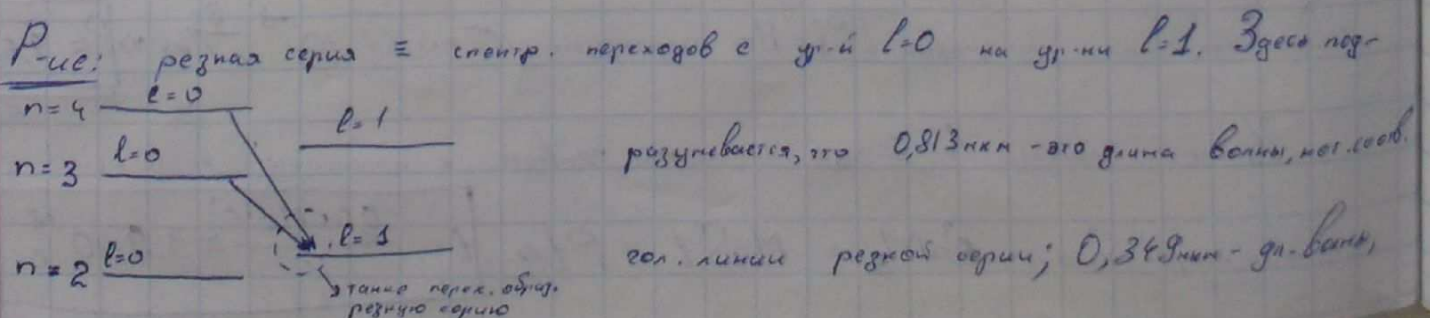 Р-ие: резкая серия ≡ спектр. переходов с ур-й l=0 на ур-ни l=1. Здесь под-
n=4 l=0
l=1
разумевается, что 0,813мкм - это длина волны, кот. соотв.
n=3 l=0
l=1
гол. линии резкой серии; 0,349мкм - дл. волны,
n=2 l=0
такие перех. образ.
резкую серию